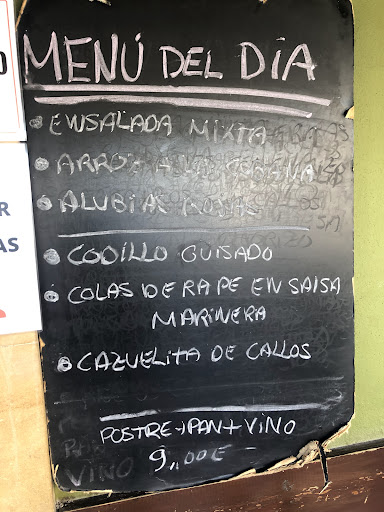 MENÚ DEL DIA
• ENSALADA MIXTA
• ARROZ A LA CUBANA
• ALUBIAS ROJAS
• CODILLO GUISADO
• COLAS DE RAPE EN SALSA
MARINERA
• CAZUELITA DE CALLOS
POSTRE+PAN+VINO
9,00€
PAN
VINO
R
AS